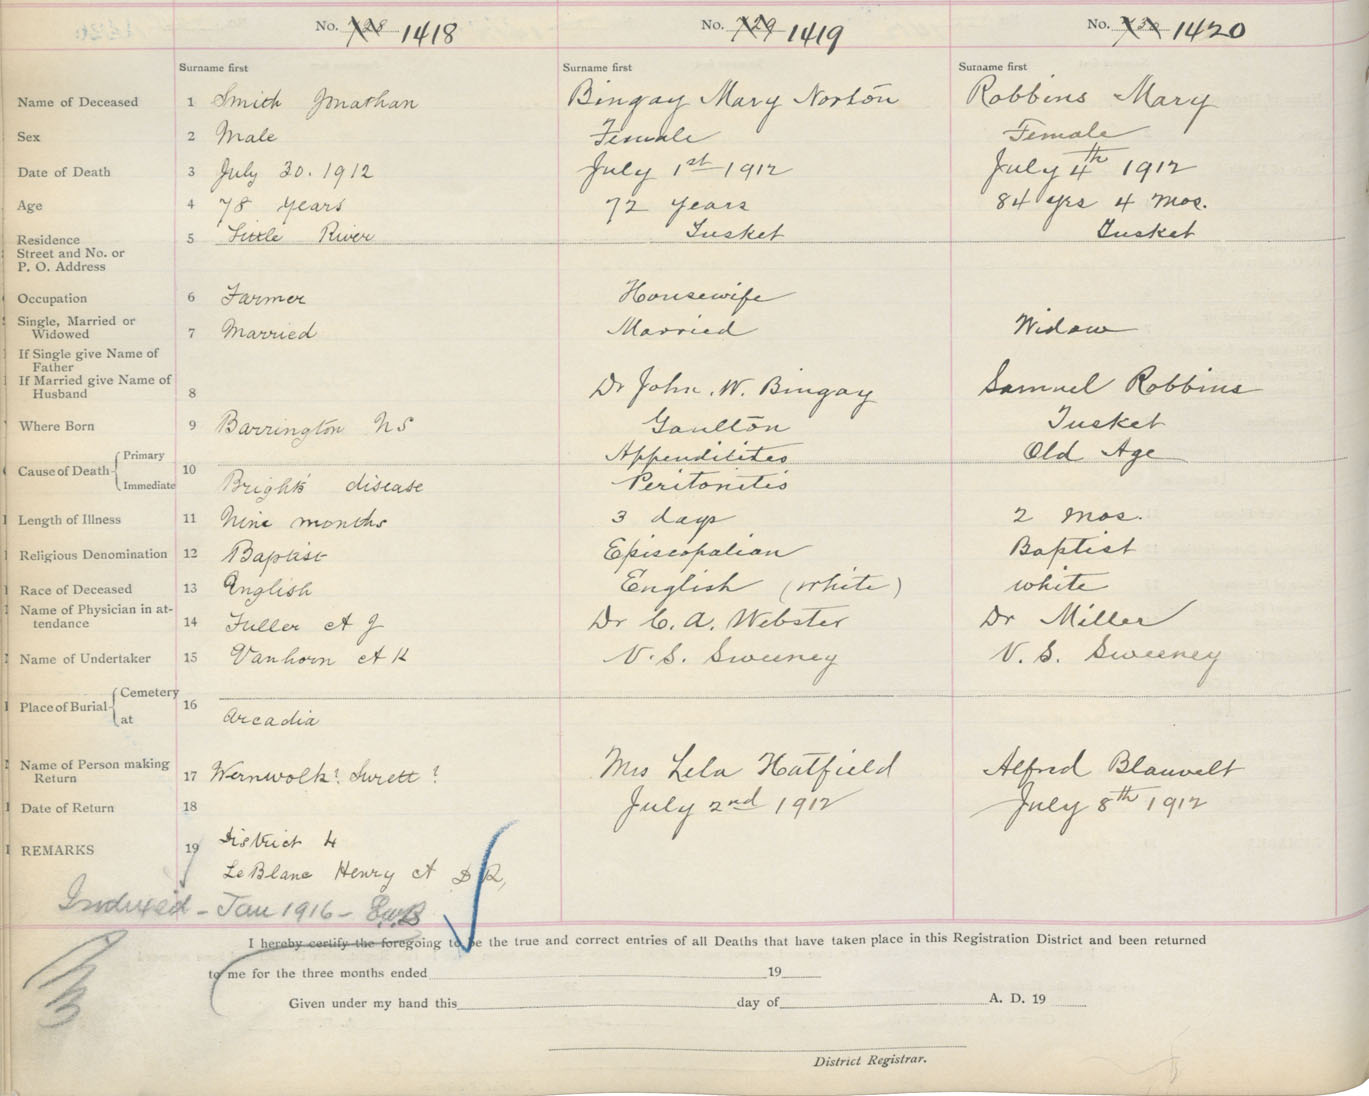 No. 728 1418 No. 729 1419 No. 730 1420
Surname first Surname first Surname first
Name of Deceased 1 Smith Jonathan Bingay Mary Norton Robbins Mary
Sex 2 Male Female Female
Date of Death 3 July 30. 1912 July 1st 1912 July 4th 1912
Age 4 78 years 72 years 84 yrs 4 mos.
Residence 5 Little River Tusket Tusket
Street and No. or
P. O. Address
Occupation 6 Farmer Housewife
Single, Married or
Widowed 7 Married Married Widow
If Single give Name of
Father
If Married give Name of
Husband 8 Dr John. W. Bingay Samuel Robbins
Where Born 9 Barrington NS Tusket
Cause of Death Primary 10 Appendisites Old Age
Immediate Bright's disease Peritonitis
Length of Illness 11 Nine months 3 days 2 mos.
Religious Denomination 12 Baptist Episcopalian Baptist
Race of Deceased 13 English English (white) white
Name of Physician in at-
tendance 14 Fuller A J Dr C. A. Webster Dr Miller
Name of Undertaker 15 Vanhorn A K N. S. Sweeney V. S. Sweeney
Place of Burial Cemetery 16
at Arcadia
Name of Person making
Return 17 Wernwolk? Surett? Mrs Lela Hatfield Alfred Blauvelt
Date of Return 18 July 2nd 1912 July 8th 1912
REMARKS 19 District 4
LeBlanc Henry A D R,
Indexed - Jan 1916 -
I hereby certify the foregoing to be the true and correct entries of all Deaths that have taken place in this Registration District and been returned
to me for the three months ended 19
Given under my hand this day of A. D. 19
District Registrar.